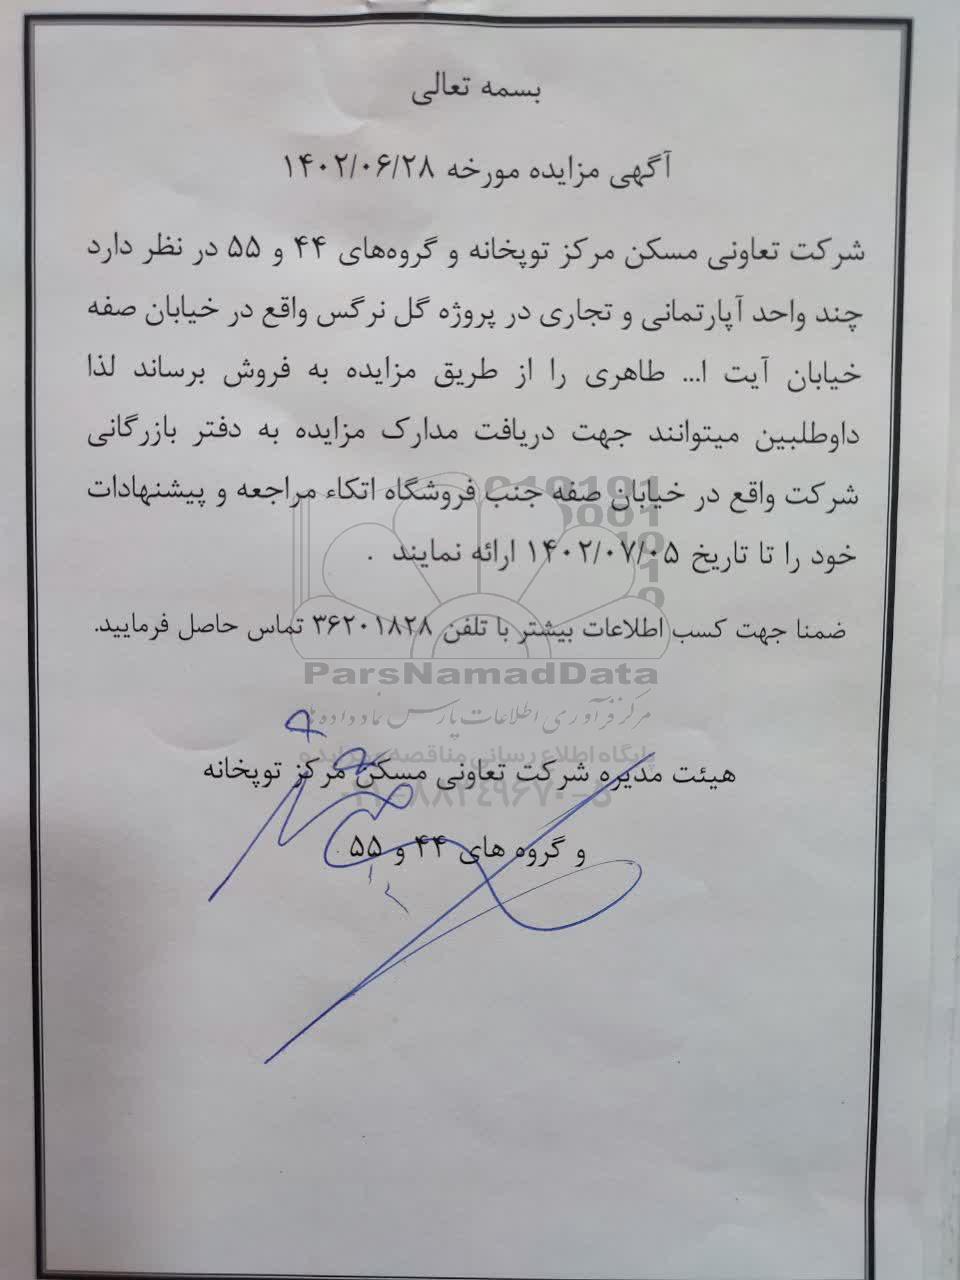 بسمه تعالی
آگهی مزایده مورخه ۱۴۰۲/۰۶/۲۸
شرکت تعاونی مسکن مرکز توپخانه و گروه‌های ۴۴ و ۵۵ در نظر دارد
چند واحد آپارتمانی و تجاری در پروژه گل نرگس واقع در خیابان صفه
خیابان آیت ا... طاهری را از طریق مزایده به فروش برساند لذا
داوطلبین میتوانند جهت دریافت مدارک مزایده به دفتر بازرگانی
شرکت واقع در خیابان صفه جنب فروشگاه اتکاء مراجعه و پیشنهادات
خود را تا تاریخ ۱۴۰۲/۰۷/۰۵ ارائه نمایند .
ضمنا جهت کسب اطلاعات بیشتر با تلفن ۳۶۲۰۱۸۲۸ تماس حاصل فرمایید.
ParsNamadData
مرکز فرآوری اطلاعات پارس نماد داده ها
پایگاه اطلاع رسانی مناقصه مزایده
هیئت مدیره شرکت تعاونی مسکن مرکز توپخانه
۰۲۱-۸۸۳۴۹۶۷۰-۵
و گروه های ۴۴ و ۵۵